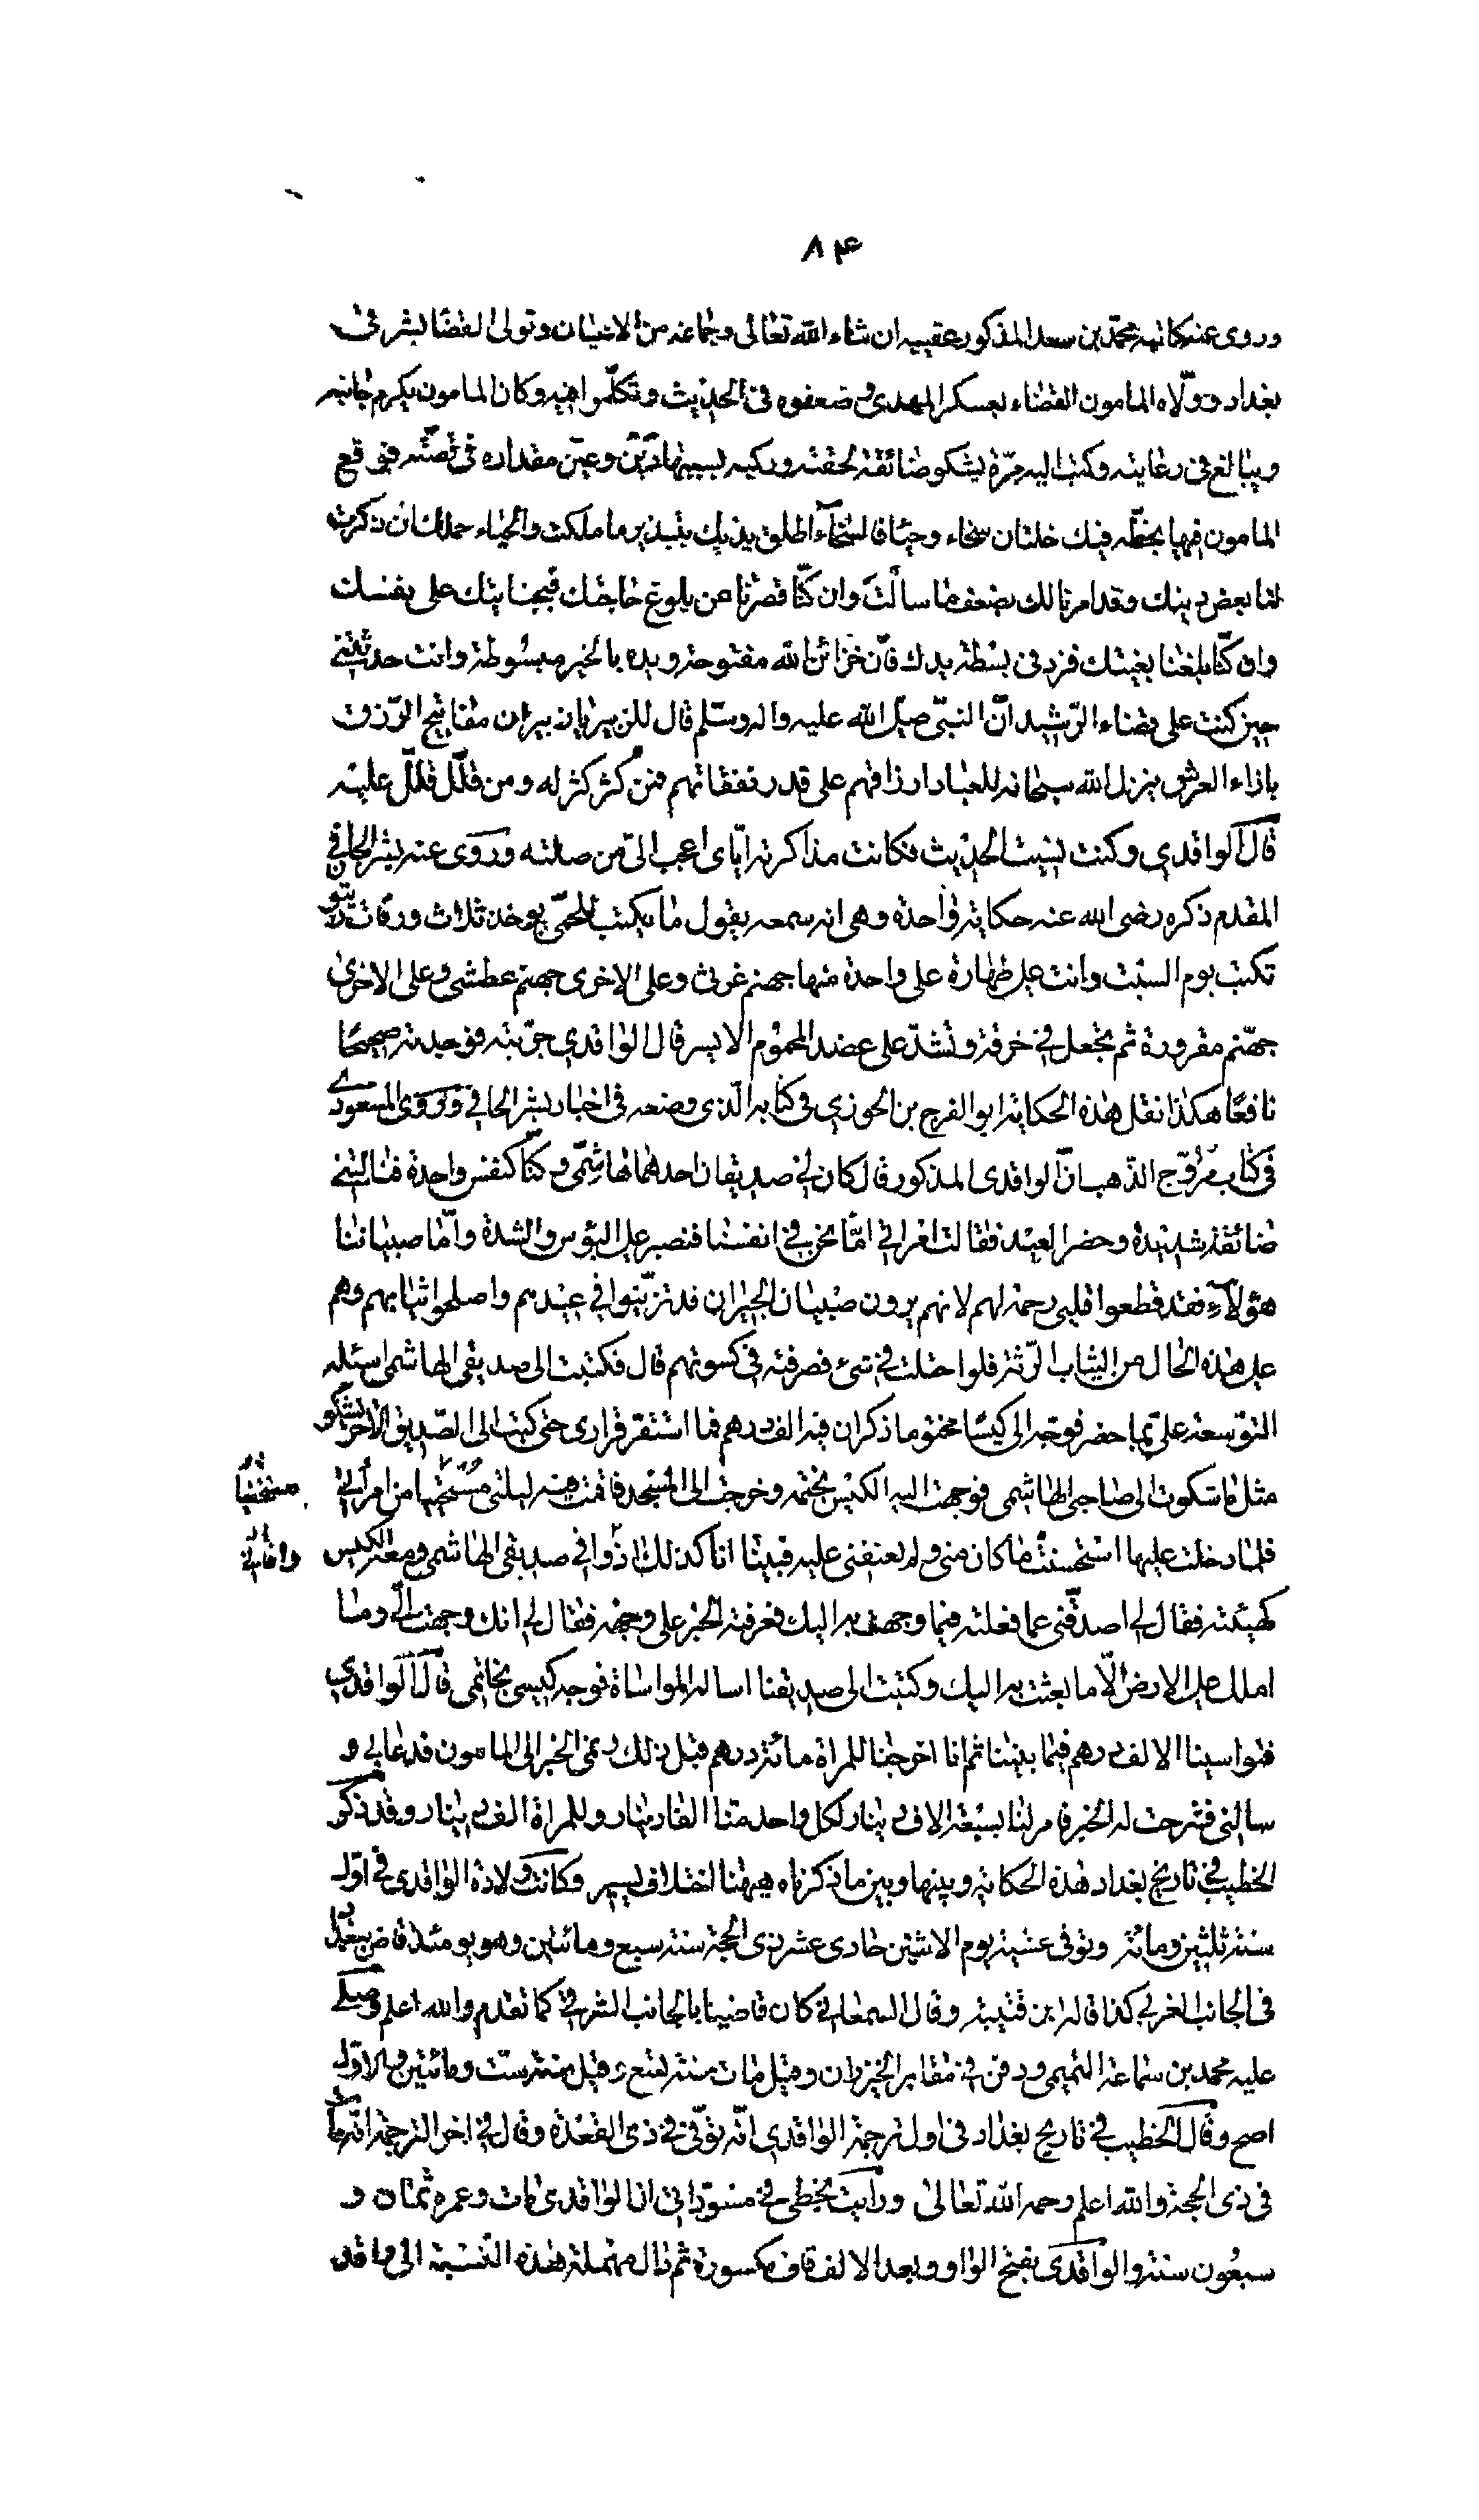 ٨۴
وروى عنه كاتبه محمد بن سعد المذكور عقيبه ان شاء الله تعالى وجماعه من الاعيان وتولى القضا بشرقى
بغداد وولّاه المامون القضاء بعسكر المهدى وضعفوه فى الحديث وتكلّموا فيه وكان المامون يكرم جانبه
ويبالغ فى رعايته وكتب اليه مرّة يشكو ضائقة لحقته وركبه بسببها دَيْن وعيّن مقداره فى قصّته فوقع
المامون فيها بخطّه فيك خلتان سخاء وحيٰا فالسّخآء اطلق يديك بتبذير ما ملكت والحيٰاء حملك ان ذكرت
لنا بعض دينك وقد امرنا لك بضعف ما سالت وان كنّا قصرنا عن بلوغ حاجتك فبجنايتك على نفسك
وان كنّا بلغنا بغيتك فزد فى بسطة يدك فانّ خزائن الله مفتوحة ويده بالخير مبسوطة وانت حدثتنى
حين كنت على قضاء الرّشيد انّ النبىّ صلى الله عليه واله وسلم قال للزبير يا زبير ان مفاتيح الرّزق
بازاء العرش ينزل الله سبحانه للعباد ارزاقهم على قدر نفقاتهم فمن كثر كثر له ومن قلّل قلّل عليه
قال الواقدي وكنت نسيت الحديث فكانت مذاكرته ايّاى اعجب الىّ من صلته وروى عنه بشر الحافي
المقدم ذكره رضى الله عنه حكاية واحدة وهى انه سمعه يقول ما يكتب للحمّى يوخذ ثلاث ورقات زيتون
تكتب يوم السبت وانت على طهارة على واحدة منها جهنم غرثى وعلى الاخرى جهنم عطشى وعلى الاخرىٰ
جهنّم مقرورة ثم تجعل في خرقة وتشدّ على عضد المحموم الايسر قال الواقدي جرّبته فوجدته صحيحًا
نافعًا هكذا نقل هذه الحكاية ابو الفرج بن الجوزي فى كتابه الّذى وضعه فى اخبار بشر الحافي وروى المسعودے
فى كتاب مروّج الذّهب انّ الواقدى المذكور قال كان لى صديقان احدهما هاشمّى وكنّا كنفس واحدة فنالتنى
ضائقة شديدة وحضر العيد فقالت امراتي امّا نحن في انفسنا فنصبر على البؤس والشدة وامّا صبياننا
هؤلآء فقد قطعوا قلبى رحمة لهم لانهم يرون صبيان الجيران قد تزيّنوا في عيدهم واصلحوا ثيابهم وهم
على هذه الحال من الثياب الرّثة فلوا حتلت في شىء فصرفته فى كسوتهم قال فكتبت الى صديقى الهاشمى اسئله
التوسعة على بما حضر فوجّه الى كيسًا مختوما ذكر ان فيه الف درهم فما استقر قرارى حتى كتب الى الصّديق الآخر يشكو
مثل ما شكوت الى صاحبى الهاشمى فوجهت اليه الكيس بختمه وخرجت الى المسجد فاقمت فيه ليلتى مستحيا من امرأتي
مستحييًا
فلما دخلت عليها استحسنت ما كان منى ولم تعنفنى عليه فبينا انا كذلك اذ وافى صديقى الهاشمى ومعه الكيس
كهيئته فقال لى اصدقنى عما فعلته فيما وجهت به اليك فعرفته الخبر على وجهه فقال لى انك وجهت الىّ وما
املك على الارض الّا ما بعثت به اليك وكتبت الى صديقنا اساله المواساة فوجه كيسى بخاتمى قال الواقدي
فتواسينا الالف درهم فيما بيننا ثم انا اخرجنا للمراة مائة درهم قبل ذلك ونمى الخبر الى المامون فدعابى و
سالنى فشرحت له الخبر فامر لنا بسبعة الاف دينار لكل واحد منّا الفا دينار وللمراة الف دينار وقد ذكر
الخطيب في تاريخ بغداد هذه الحكاية وبينها وبين ما ذكرناه هيهنا اختلاف يسير وكانت ولادة الواقدى فى اوّل
سنة ثلثين ومائة وتوفى عشية يوم الاثنين حادى عشر ذى الحجة سنة سبع ومائتين وهو يومئذ قاض ببغداد
فى الجانب الغربى كذا قاله ابن قتيبة وقال السمعانى كان قاضيا بالجانب الشرقى كما تقدم والله اعلم وصلے
عليه محمد بن سماعة التميمى ودفن فى مقابر الخيزران وقيل مات سنة تسع وقيل سنة ست ومائتين والاوّل
اصح وقال الخطيب في تاريخ بغداد فى اول ترجمة الواقدي انّه توفّى فى ذى القعدة وقال في اخر الترجمة انّه مات
فى ذى الحجة والله اعلم رحمه الله تعالىٰ ورايت بخطى في مسوّداتى ان الواقدى مات وعمره ثمان و
سبعُون سنة والواقدى بفتح الواو وبعد الالف قاف مكسورة ثم دال مهملة هذه النّسبة الى واقد